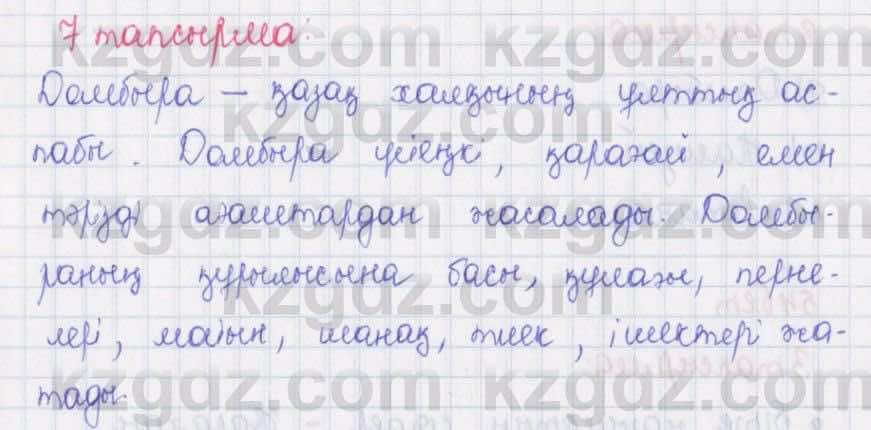 7 тапсырма:
Домбыра – қазақ халқының ұлттық ас-
пабы. Домбыра үйеңкі, қарағай, емен
тәрізді ағаштардан жасалады. Домбы-
раның құрылысына басы, құлағы, перне-
лері, мойын, шанақ, тиек, ішектері жа-
тады.
kzgdz.com